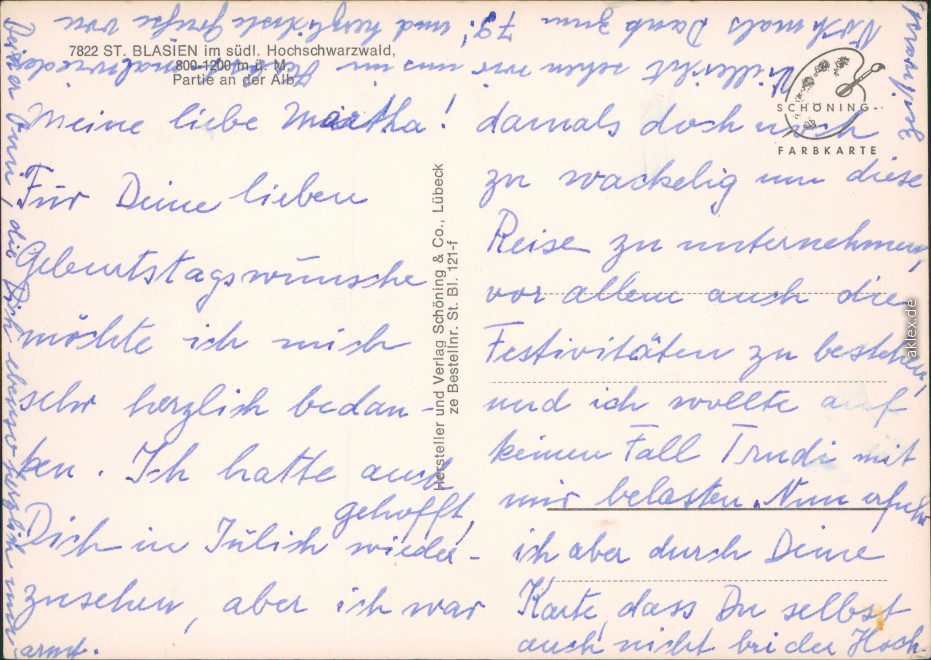 7822 ST. BLASIEN im südl. Hochschwarzwald,
800-1200 m ü. M.
Partie an der Alb
Meine liebe Martha!
Für Deine lieben
Geburtstagswünsche
möchte ich mich
sehr herzlich bedan-
ken. Ich hatte auch
gehofft,
Dich in Jülich wieder-
zusehen, aber ich war
damals doch noch
zu wackelig um diese
Reise zu unternehmen,
vor allem auch die
Festivitäten zu bestehen,
und ich wollte auf
keinen Fall Trudi mit
mir belasten. Nun erfuhr
ich aber durch Deine
Karte, dass Du selbst
auch nicht bei der Hoch-
Vielleicht sehen wir uns im
nochmals Dank zum 79! und herzlichste Grüße von
Deiner Omi, die Dich ebenso herzlich um-
armt.
Hersteller und Verlag Schöning & Co., Lübeck
ze Bestellnr. St. Bl. 121-f
SCHÖNING
FARBKARTE
aklex.de